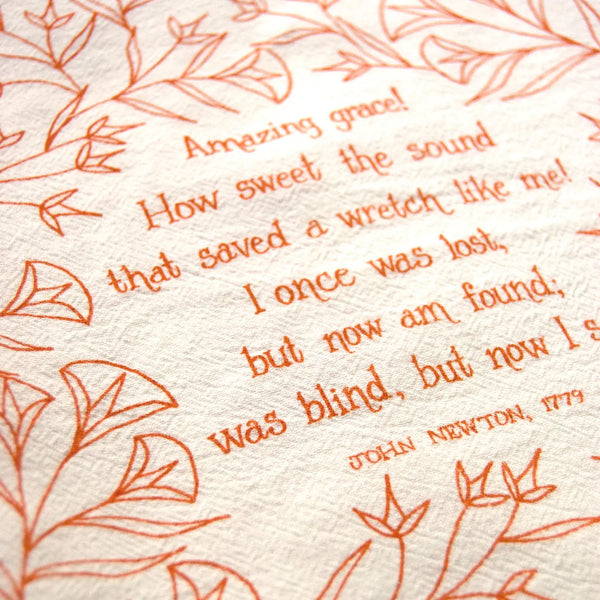 Amazing grace!
How sweet the sound
that saved a wretch like me!
I once was lost,
but now am found;
was blind, but now I s
JOHN NEWTON, 1779